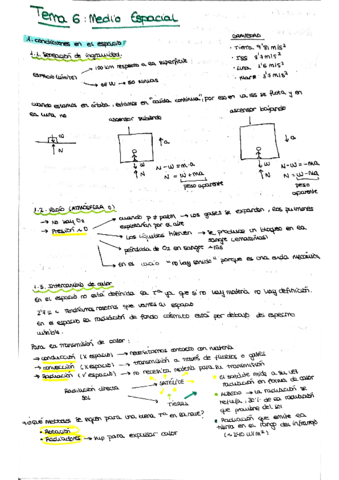 Tema 6: Medio Espacial
1. Condiciones en el espacio
1.1. Sensación de ingravidez
GRAVEDAD
· Tierra 9'81 m/s²
· ISS
· Luna 1'6 m/s²
· Marte 3'7 m/s²
100 km respecto a la superficie
cuando estamos en órbita: estamos en "caída continua", por eso en la ISS se flota y en
la luna no
ascensor subiendo
ascensor bajando
W
N
a
N - W = m·a
N = W + ma
peso aparente
N - W = -m·a
N = W - ma
peso aparente
1.2. Vacío (ATMÓSFERA 0)
→ No hay O₂
→ Presión → 0
cuando
los gases se expanden, los pulmones
explotarán por el aire
los líquidos hierven → se produce un bloqueo en la
sangre
pérdida de O₂ en sangre
en el vacío "no hay sonido" porque es una onda mecánica
1.3. Intercambio de calor
En el espacio no está definida la Tª ya que si no hay materia no hay definición.
En el espacio la radiación de fondo cósmico está por debajo del espectro
visible.
Para la transmisión de calor:
→ conducción (X espacio) → necesitamos contacto con materia
→ convección (X espacio) → transmisión a través de fluidos o gases
→ Radiación (✓ espacio) → no necesita materia para su transmisión
Radiación directa
Sol
SATÉLITE
TIERRA
El satélite emite a su vez
radiación en forma de calor
Albedo → la radiación se
refleja, 30% de la radiación
que proviene del sol
Radiación que emite la
tierra en el rango del infrarrojo
(≈ 240 W/m²)
¿Qué métodos se siguen para una buena Tª en la nave?
→ Rotación
→ Radiadores → sup para expulsar calor